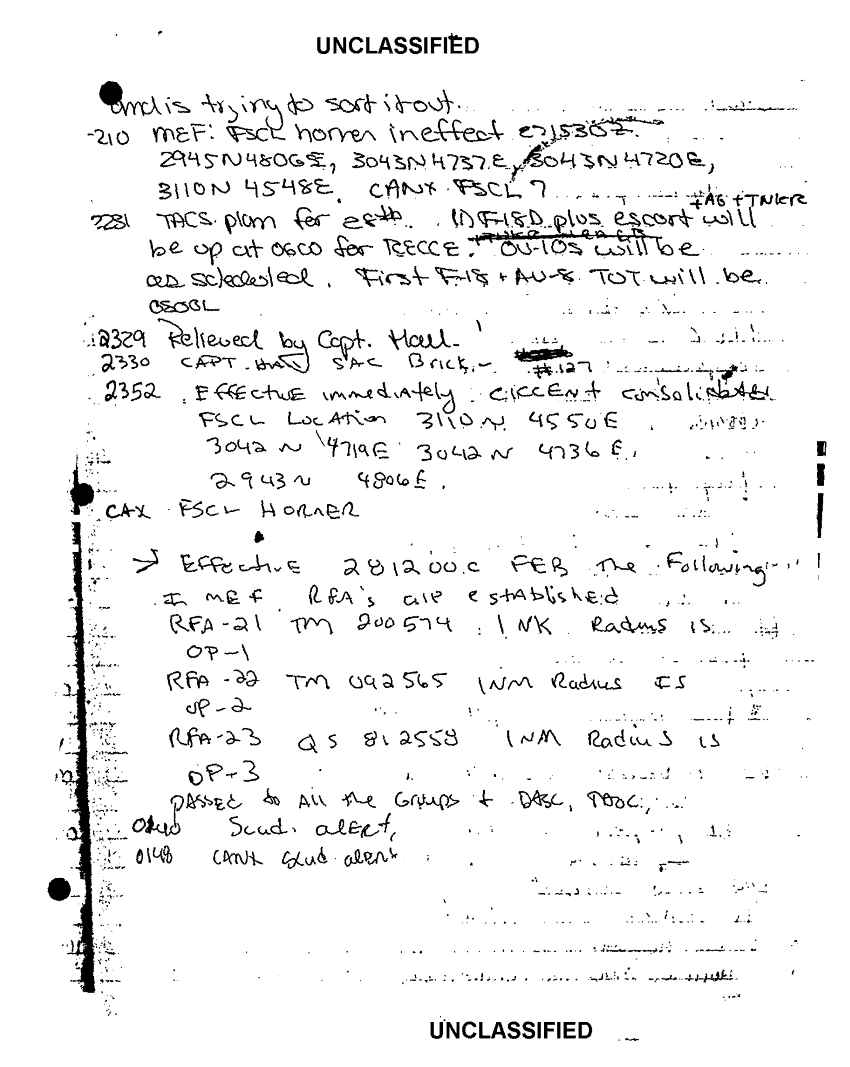 UNCLASSIFIED
and is trying to sort it out.
-210 MEF: FSCL horner in effect
2945N 4806E, 3043N 4737E, 3043N 4720E,
3110N 4548E. CANX FSCL 7
+ A6 + TNKER
TACS plan for 1) F-18D plus escort will
be up at 0600 for RECCE. OV-10s will be
as scheduled. First F-18 + AV-8 TOT will be
2329 Relieved by Capt. Hall
2330 CAPT. Hall SAC Brick #127
2352 Effective immediately
FSCL Location 3110N 4550E
3042N 4719E 3042N 4736E,
2943N 4806E.
CAX FSCL HORNER
> Effective 281200C FEB the Following
I MEF RFA's are established
RFA-21 TM 200574 1 NM Radius is
OP-1
RFA-22 TM 092565 1NM Radius IS
OP-2
RFA-23 QS 812558 1NM Radius is
OP-3
PASSED to All the Groups + DASC, TAOC,
Scud alert,
0148 CANX Scud alert
UNCLASSIFIED